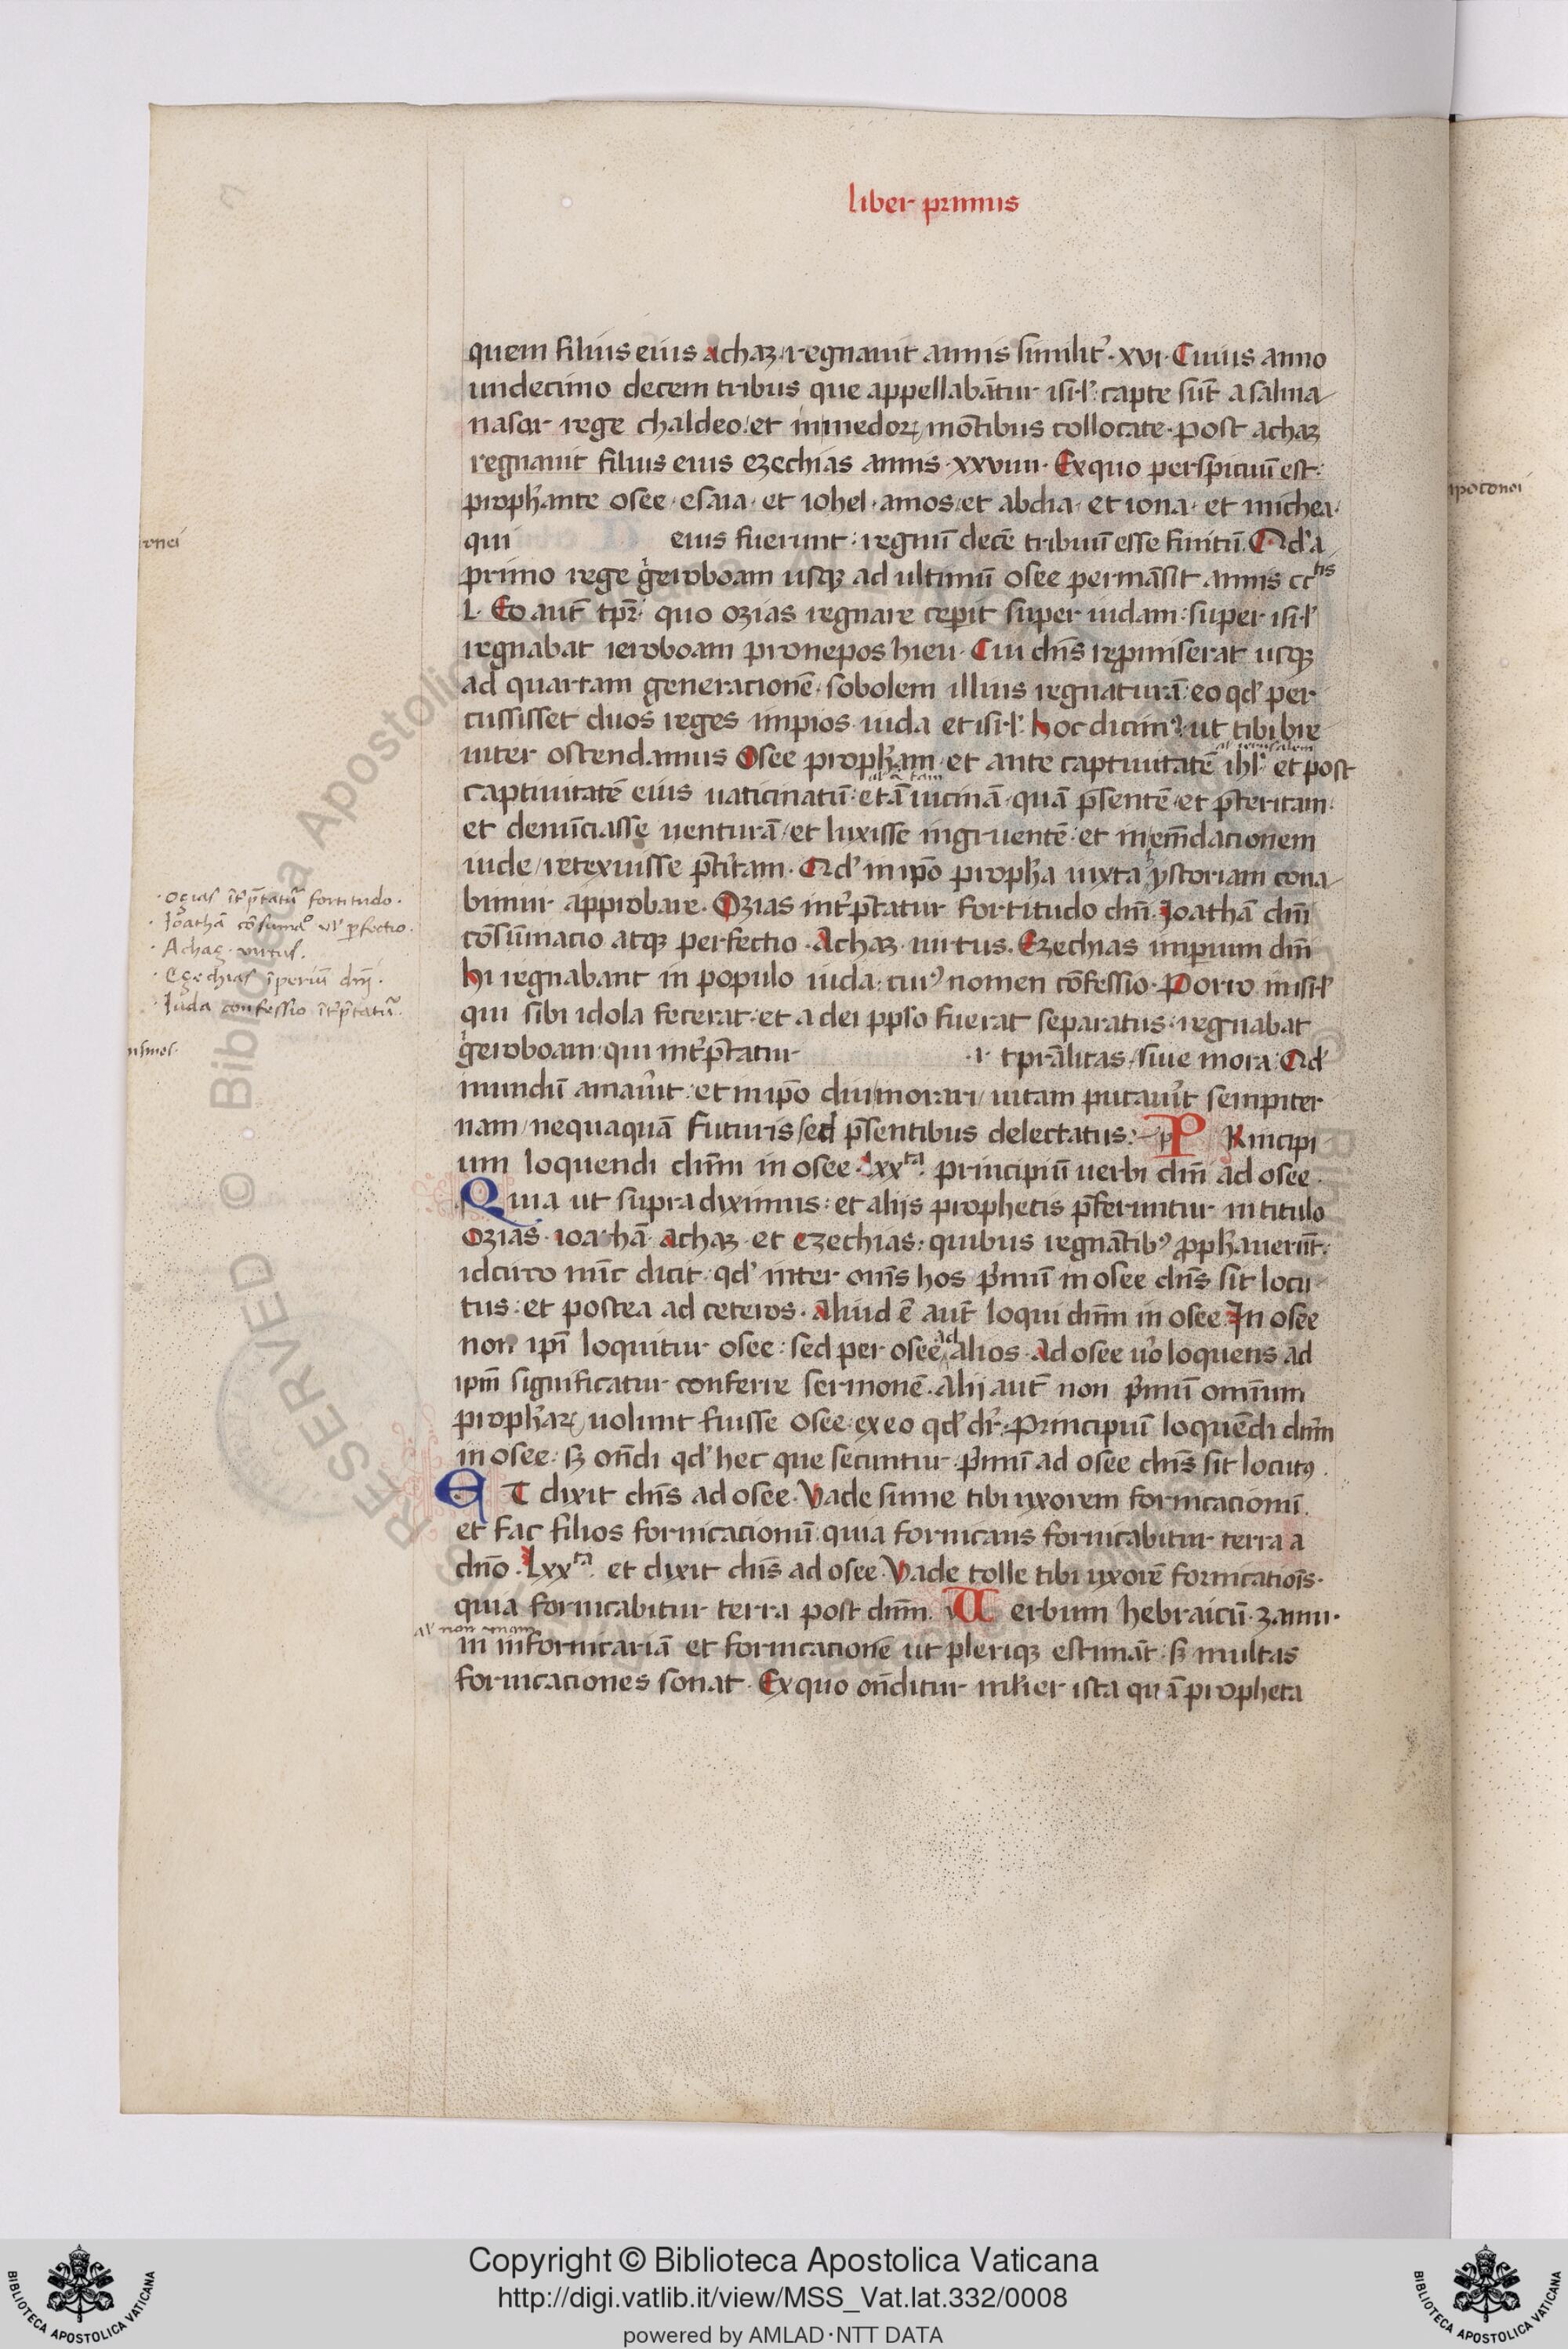 liber primus
quem filius eius achaz regnauit annis similit̄ · xvi · Cuius anno
undecimo decem tribus que appellabāt̄ur isrl̄ : capte sūt a salma
nasar rege chaldeo : et in medorꝝ mōtibus collocate · post achaz
regnauit filius eius ezechias annis · xxviiii · Ex quo perspicuū est :
proph̄ante osee · esaia · et iohel · amos · et abdia · et iona · et michea ·
qui eius fuerunt : regnū decē tribuū esse finitū. Qd' a
primo rege geroboam usqꝫ ad ultimū osee permāsit annis cctis
l · Eo aut̄ tpr̄e · quo ozias regnare cepit super iudam : super isrl̄
regnabat ieroboam pronepos hieu · Cui dn̄s repromiserat usqꝫ
ad quartam generacionē · sobolem illius regnaturā : eo qd' per
cussisset duos reges impios iuda et isrl̄ · hoc dicimꝰ : ut tibi bre
al' ierusalem
uiter ostendamus Osee proph̄am · et ante captiuitatē ihl' et post
al' et tam
captiuitatē eius uaticinatū : et tā uicinā · quā p̄sentē · et p̄teritam :
et denūciasse uenturā / et luxisse ingruentē · et in em̄dacionem
iude / retexuisse p̄t̄itam · Qd' in ip̄o proph̄a iuxta ystoriam cona
bimur approbare · Ozias int̄p̄tatur fortitudo dn̄i. Joathā dn̄i
cōsūmacio atqꝫ perfectio · Achaz · uirtus. Ezechias imperium dn̄i
hi regnabant in populo iuda : cuiꝰ nomen cōfessio · Porro in isrl̄
qui sibi idola fecerat : et a dei pp̄lo fuerat separatus : regnabat
geroboam : qui int̄p̄tatur · i · tp̄rālitas / siue mora : Qd'
mundū amau̓it : et in ip̄o diu morari / uitam putau̓it sempiter
nam / nequaquā futuris sed p̄sentibus delectatus : P Rincipi
um loquendi dn̄m in osee · Lxxta · principiū uerbi dn̄i ad osee ·
Quia ut supra diximus : et alijs prophetis p̄feruntur in titulo
ozias · ioathā · achaz · et ezechias : quibus regnātibꝰ p̄ph̄auerūt :
idcirco nūc dicit · qd' inter om̄s hos p̄mū in osee dn̄s sit locu
tus : et postea ad ceteros · Aliud ē aut̄ loqui dn̄m in osee. In osee
non ip̄i loquitur osee : sed per osee ad alios · Ad osee u̓o loquens ad
ipm̄ significatur conferre sermonē. Alij aut̄ non p̄mū omnium
proph̄arꝝ uolunt fuisse osee · ex eo qd' dr̄ : Principiū loquēdi dn̄m
in osee : sꝫ on̄di qd' hec que secuntur · p̄mū ad osee dn̄s sit locutꝰ ·
ET dixit dn̄s ad osee · Vade sume tibi uxorem fornicacionū.
et fac filios fornicacionū : quia fornicans fornicabitur terra a
dn̄o · Lxxta · et dixit dn̄s ad osee · Vade tolle tibi uxorē fornicationis ·
quia fornicabitur terra post dn̄m. U erbum hebraicū · zanu ·
al' non unam
in in fornicariā et fornicationē ut pleriqꝫ estimāt : sꝫ multas
fornicaciones sonat · Ex quo on̄ditur mlier ista quā propheta
· Ozias īt̄p̄tatur fortitudo ·
· Joathā cōsumao vl' p̄fectio ·
· Achaz · virtus.
· Ezechias īperiū dn̄i ·
· Juda confessio īt̄p̄tatur ·
Copyright © Biblioteca Apostolica Vaticana
http://digi.vatlib.it/view/MSS_Vat.lat.332/0008
powered by AMLAD·NTT DATA
BIBLIOTECA APOSTOLICA VATICANA
BIBLIOTECA APOSTOLICA VATICANA